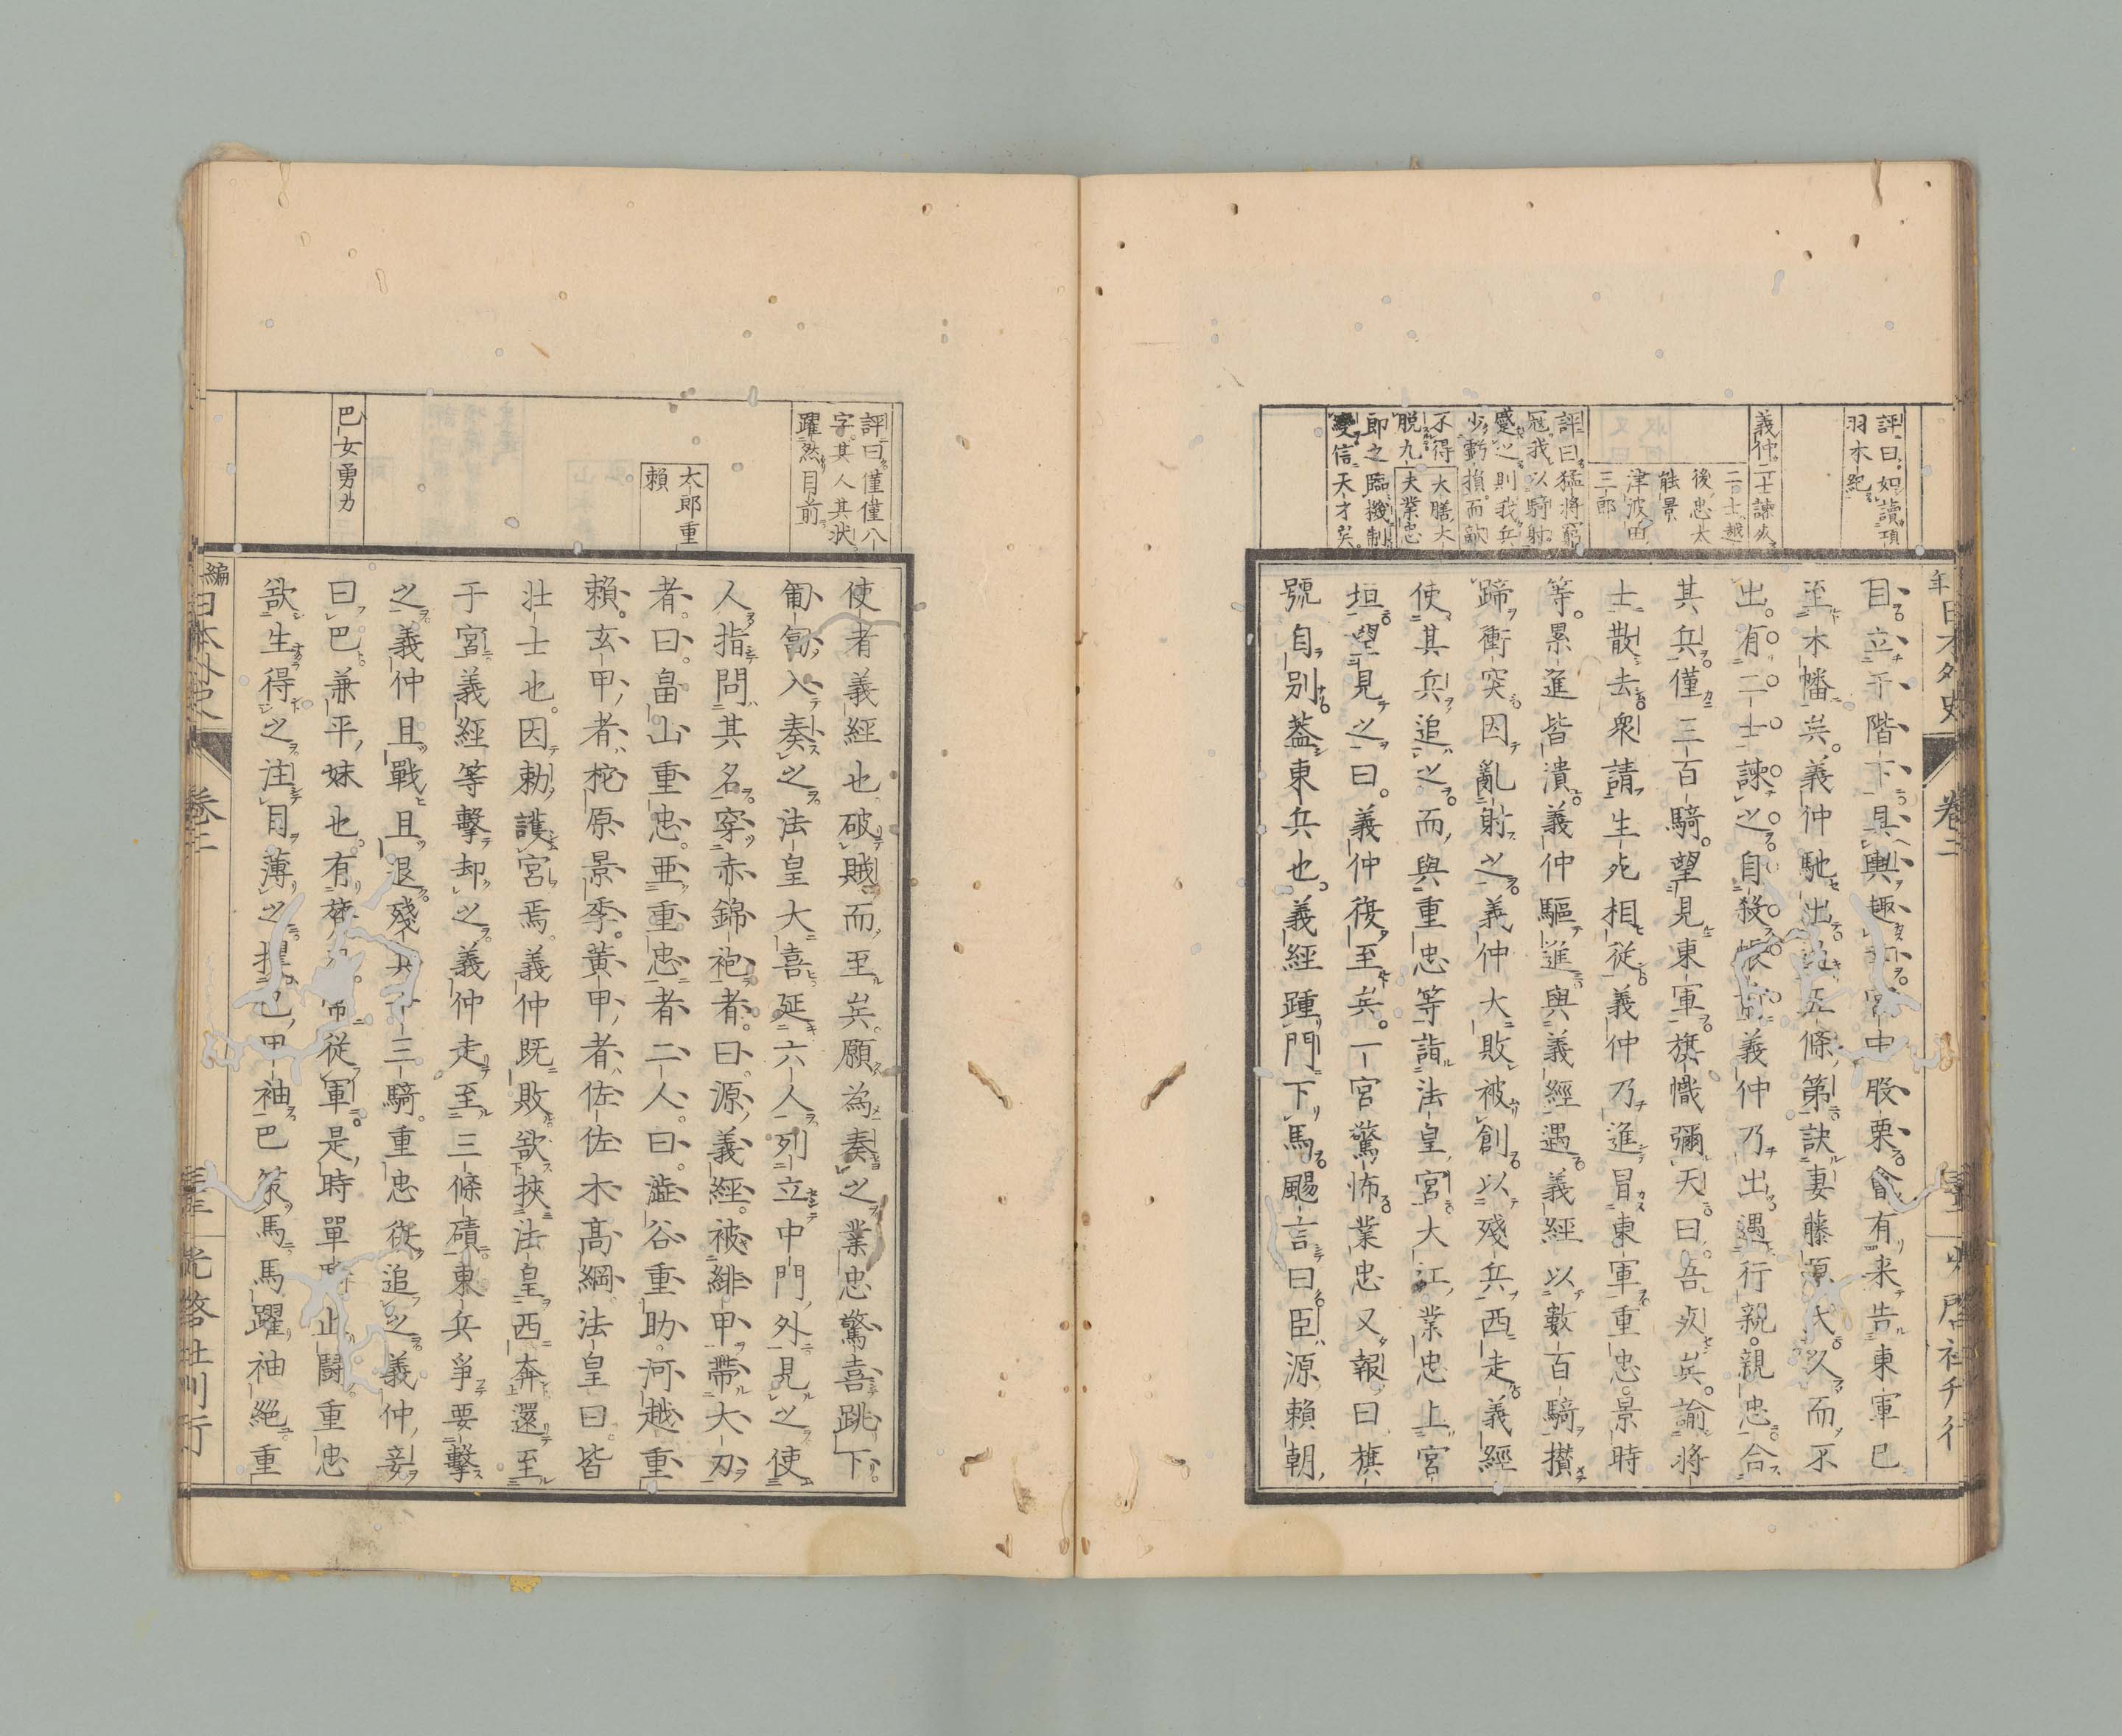 評曰。如讀項
羽木紀
義仲二士諫死
二士越
後忠太
能景
津波田
三郎
評曰猛將窮
寇我以騎射
蹙之則我兵
少虧損而敵
不得
脱九
即之臨機制
變信天才矣。
大膳大
夫業忠
目立于階下具輿趣宮中股栗會有来告東軍已
至木幡矣。義仲馳出五條第訣妻藤原氏久而不
出。有二士諫之自殺義仲乃出遇行親。親忠合
其兵僅三百騎。望見東軍旗幟彌天曰。吾死矣。諭將
士散去衆請生死相從義仲乃進冒東軍重忠。景時
等。累進皆潰義仲驅進與義經遇義經以數百騎攅
蹄衝突因亂射之義仲大敗被創以殘兵西走義經
使其兵追之而與重忠等詣法皇宮大江業忠上宮
垣望見之曰。義仲復至矣。一宮驚怖業忠又報曰旗
號自別蓋東兵也。義經踵門下馬颺言曰臣源賴朝
年日本外史
卷二
評曰僅僅八
字。其人其状
躍然目前
太郎重
賴
巴女勇力
使者義經也破賊而至矣。願為奏之業忠驚喜跳下
匍匐入奏之法皇大喜延六人列立中門外見之使
人指問其名穿赤錦袍者。曰源義經。被緋甲帶大刀
者。曰。畠山重忠。亜重忠者二人。曰。澁谷重助。河越重
賴。玄甲者梶原景季。黄甲者佐佐木高綱。法皇曰。皆
壮士也。因勅護宮焉。義仲既敗欲挾法皇西奔還至
于宮義經等擊却之。義仲走至三條磧東兵爭要擊
之義仲且戰且退殘三騎。重忠從追之義仲妾
曰巴兼平妹也。有從軍是時單止闘重忠
欲生得之注目薄之甲袖巴策馬馬躍袖絶重
編日本外史
卷二
光啓社刊行